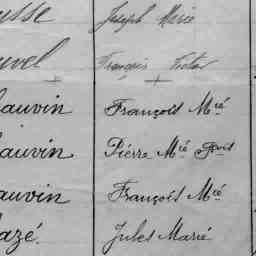 usse Joseph Marie
uvel François Victor
hauvin François Mie
hauvin Pierre Mie Fois
hauvin François Mie
azé. Jules Marie